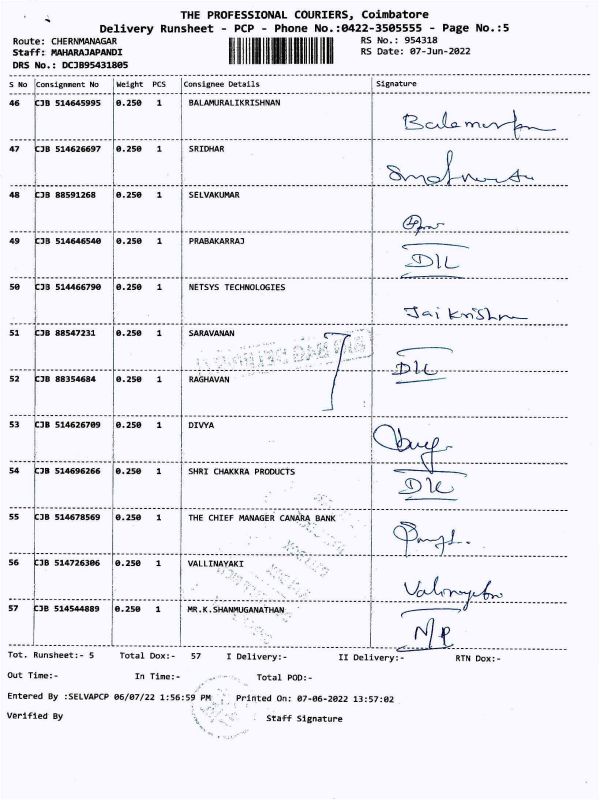 THE PROFESSIONAL COURIERS, Coimbatore
Delivery Runsheet - PCP - Phone No.:0422-3505555 - Page No.:5
Route: CHERNMANAGAR RS No.: 954318
Staff: MAHARAJAPANDI RS Date: 07-Jun-2022
DRS No.: DCJB95431805
S No Consignment No Weight PCS Consignee Details Signature
46 CJB 514645995 0.250 1 BALAMURALIKRISHNAN
47 CJB 514626697 0.250 1 SRIDHAR
48 CJB 88591268 0.250 1 SELVAKUMAR
49 CJB 514646540 0.250 1 PRABAKARRAJ D/L
50 CJB 514466790 0.250 1 NETSYS TECHNOLOGIES Jai Krishna
51 CJB 88547231 0.250 1 SARAVANAN D/L
52 CJB 88354684 0.250 1 RAGHAVAN
53 CJB 514626709 0.250 1 DIVYA
54 CJB 514696266 0.250 1 SHRI CHAKKRA PRODUCTS D/L
55 CJB 514678569 0.250 1 THE CHIEF MANAGER CANARA BANK
56 CJB 514726306 0.250 1 VALLINAYAKI
57 CJB 514544889 0.250 1 MR.K.SHANMUGANATHAN N/P
Tot. Runsheet:- 5 Total Dox:- 57 I Delivery:- II Delivery:- RTN Dox:-
Out Time:- In Time:- Total POD:-
Entered By :SELVAPCP 06/07/22 1:56:59 PM Printed On: 07-06-2022 13:57:02
Verified By Staff Signature